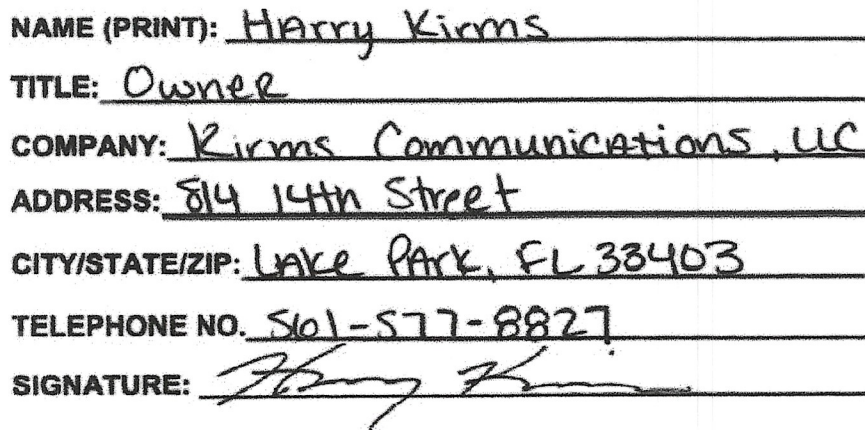 NAME (PRINT): Harry Kirms
TITLE: Owner
COMPANY: Kirms Communications, LLC
ADDRESS: 814 14th Street
CITY/STATE/ZIP: Lake Park, FL 33403
TELEPHONE NO. 561-577-8827
SIGNATURE: Harry Kirms